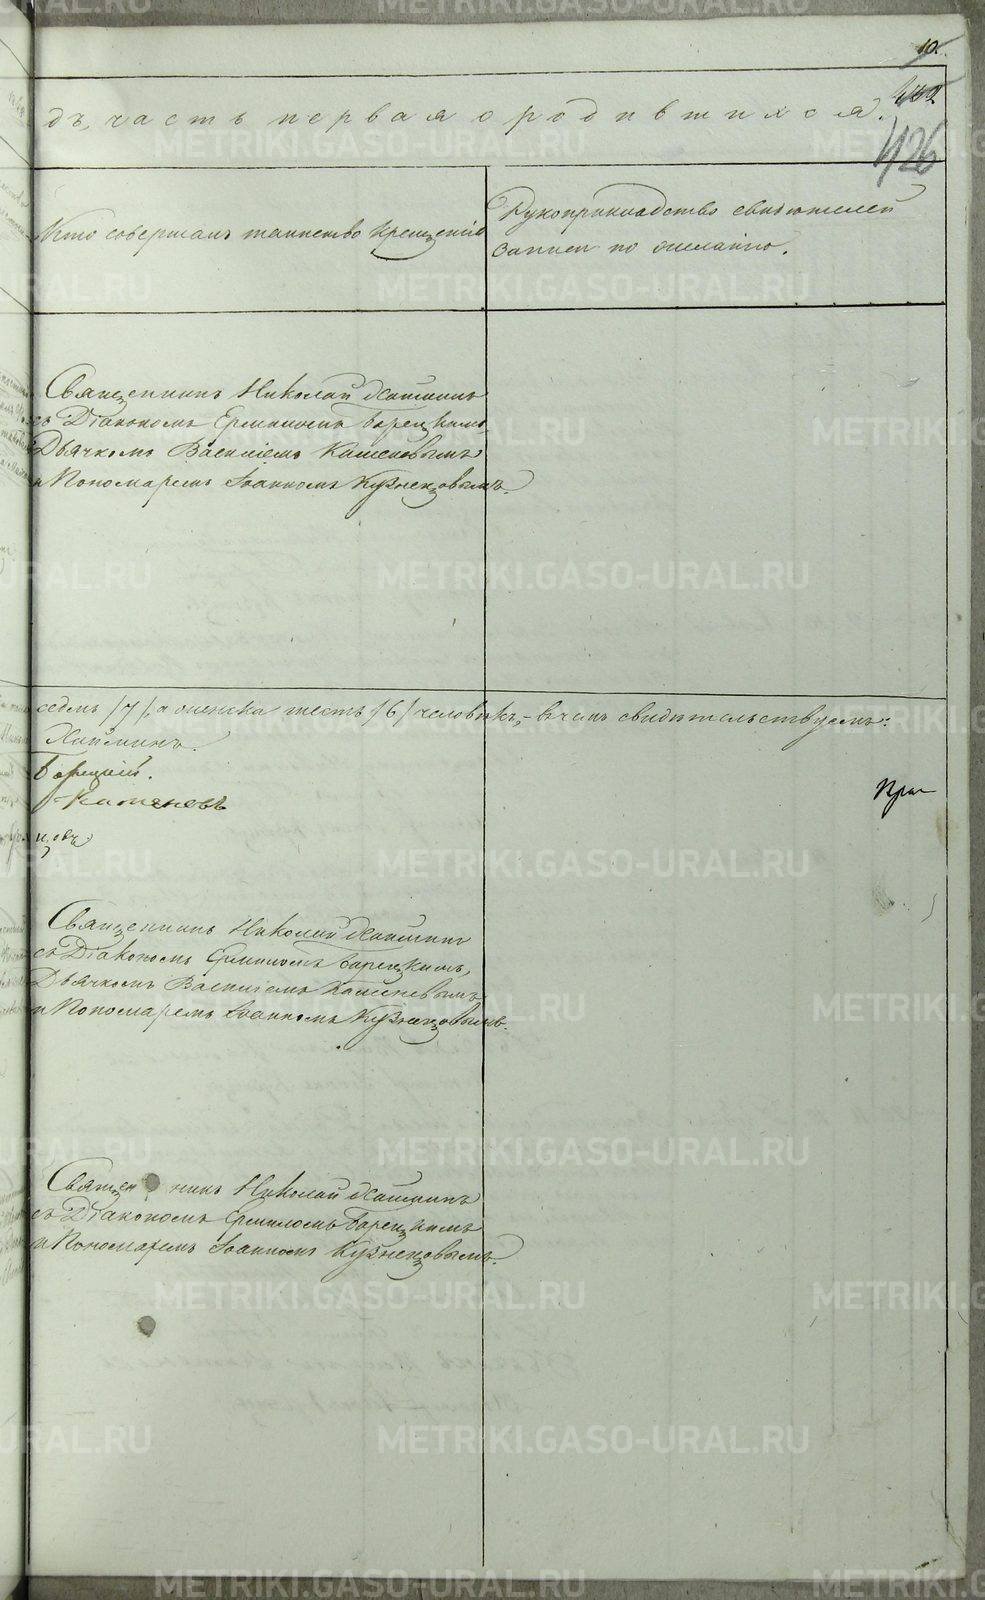 10.
426
дъ, часть первая о родившихся.
Кто совершалъ таинство крещенія
Рукоприкладство свидѣтелей
записи по желанію.
Священникъ Николай Хаймин
съ Діакономъ Ермиломъ Борецкимъ,
Дьячкомъ Василіемъ Каменевымъ
и Пономаремъ Іоанномъ Кузнецовымъ.
седмь /7/, а женска шесть /6/ человѣкъ, – въ чемъ свидѣтельствуемъ:
Хайминъ.
Борецкій.
Каменевъ
цовъ
Священникъ Николай Хаймин
съ Діакономъ Ермиломъ Борецкимъ,
Дьячкомъ Василіемъ Каменевымъ
и Пономаремъ Іоанномъ Кузнецовымъ.
Священникъ Николай Хайминъ
съ Діакономъ Ермиломъ Борецкимъ
и Пономаремъ Іоанномъ Кузнецовымъ.
METRIKI.GASO-URAL.RU